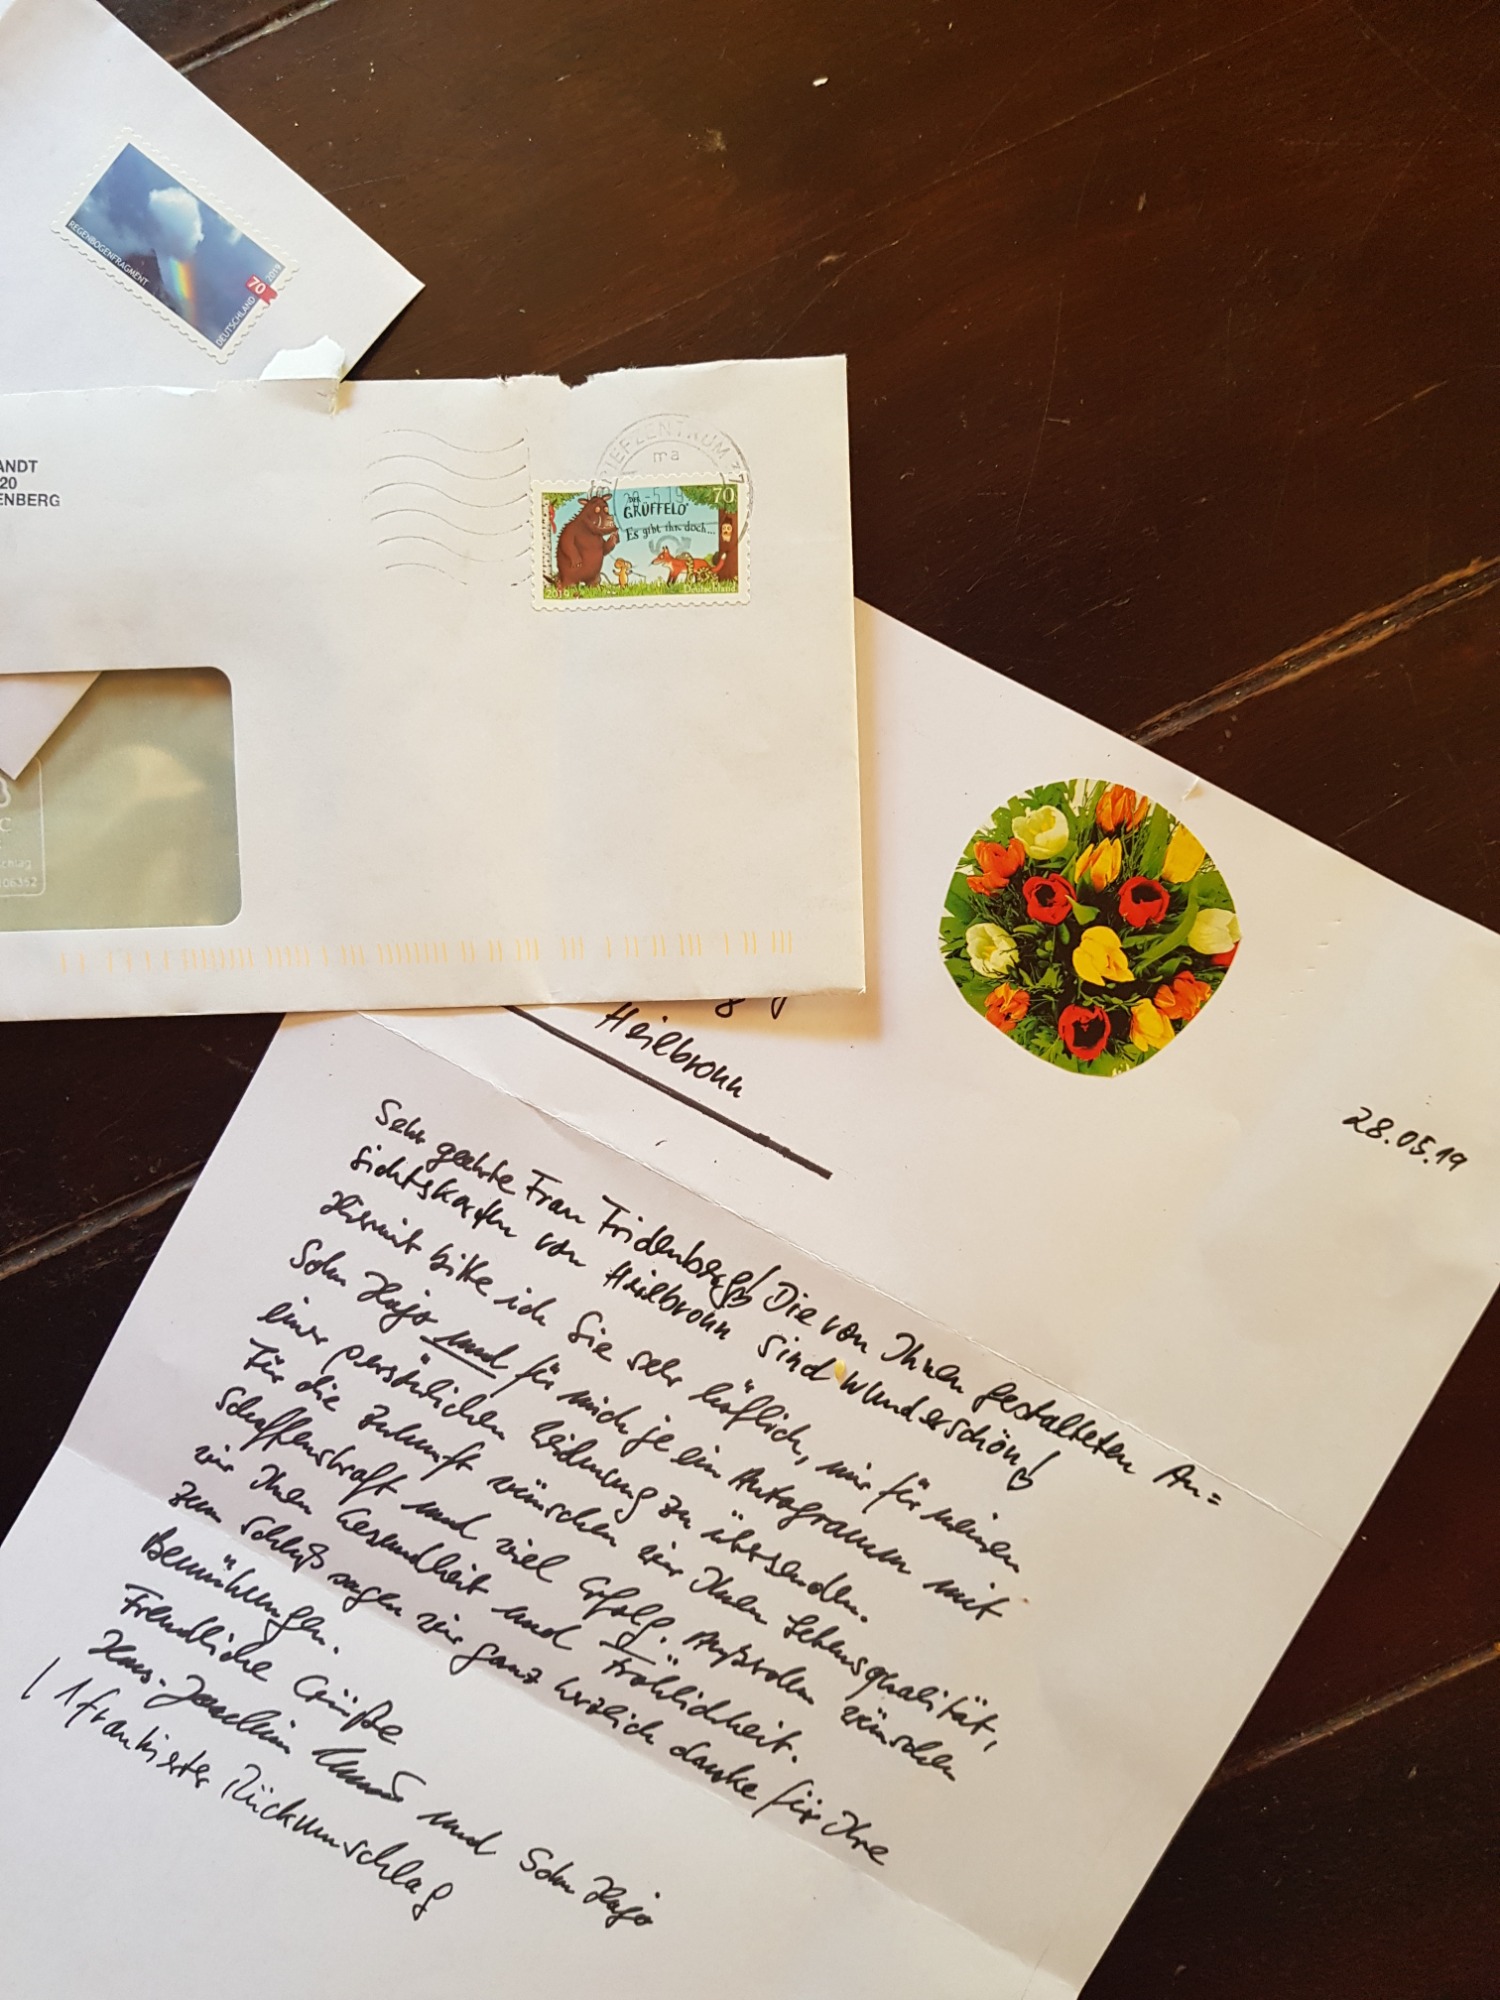 REGENBOGENFRAGMENT
DEUTSCHLAND
70
2019
ANDT
20
ENBERG
BRIEFZENTRUM 37
ma
-5.19
DER
GRÜFFELO
Es gibt ihn doch...
70
2019
Deutschland
C
chlag
106352
Heilbronn
28.05.19
Sehr geehrte Frau Fridenberg! Die von Ihnen gestalteten An=
sichtskarten von Heilbronn sind wunderschön!
Hiermit bitte ich Sie sehr höflich, mir für meinen
Sohn Hajo und für mich je ein Autogramm mit
einer persönlichen Widmung zu übersenden.
Für die Zukunft wünschen wir Ihnen Lebensqualität,
Schaffenskraft und viel Erfolg. Außerdem wünschen
wir Ihnen Gesundheit und Fröhlichkeit.
Zum Schluß sagen wir ganz herzlich danke für Ihre
Bemühungen.
Freundliche Grüße
Hans-Joachim und Sohn Hajo
1 frankierter Rückumschlag